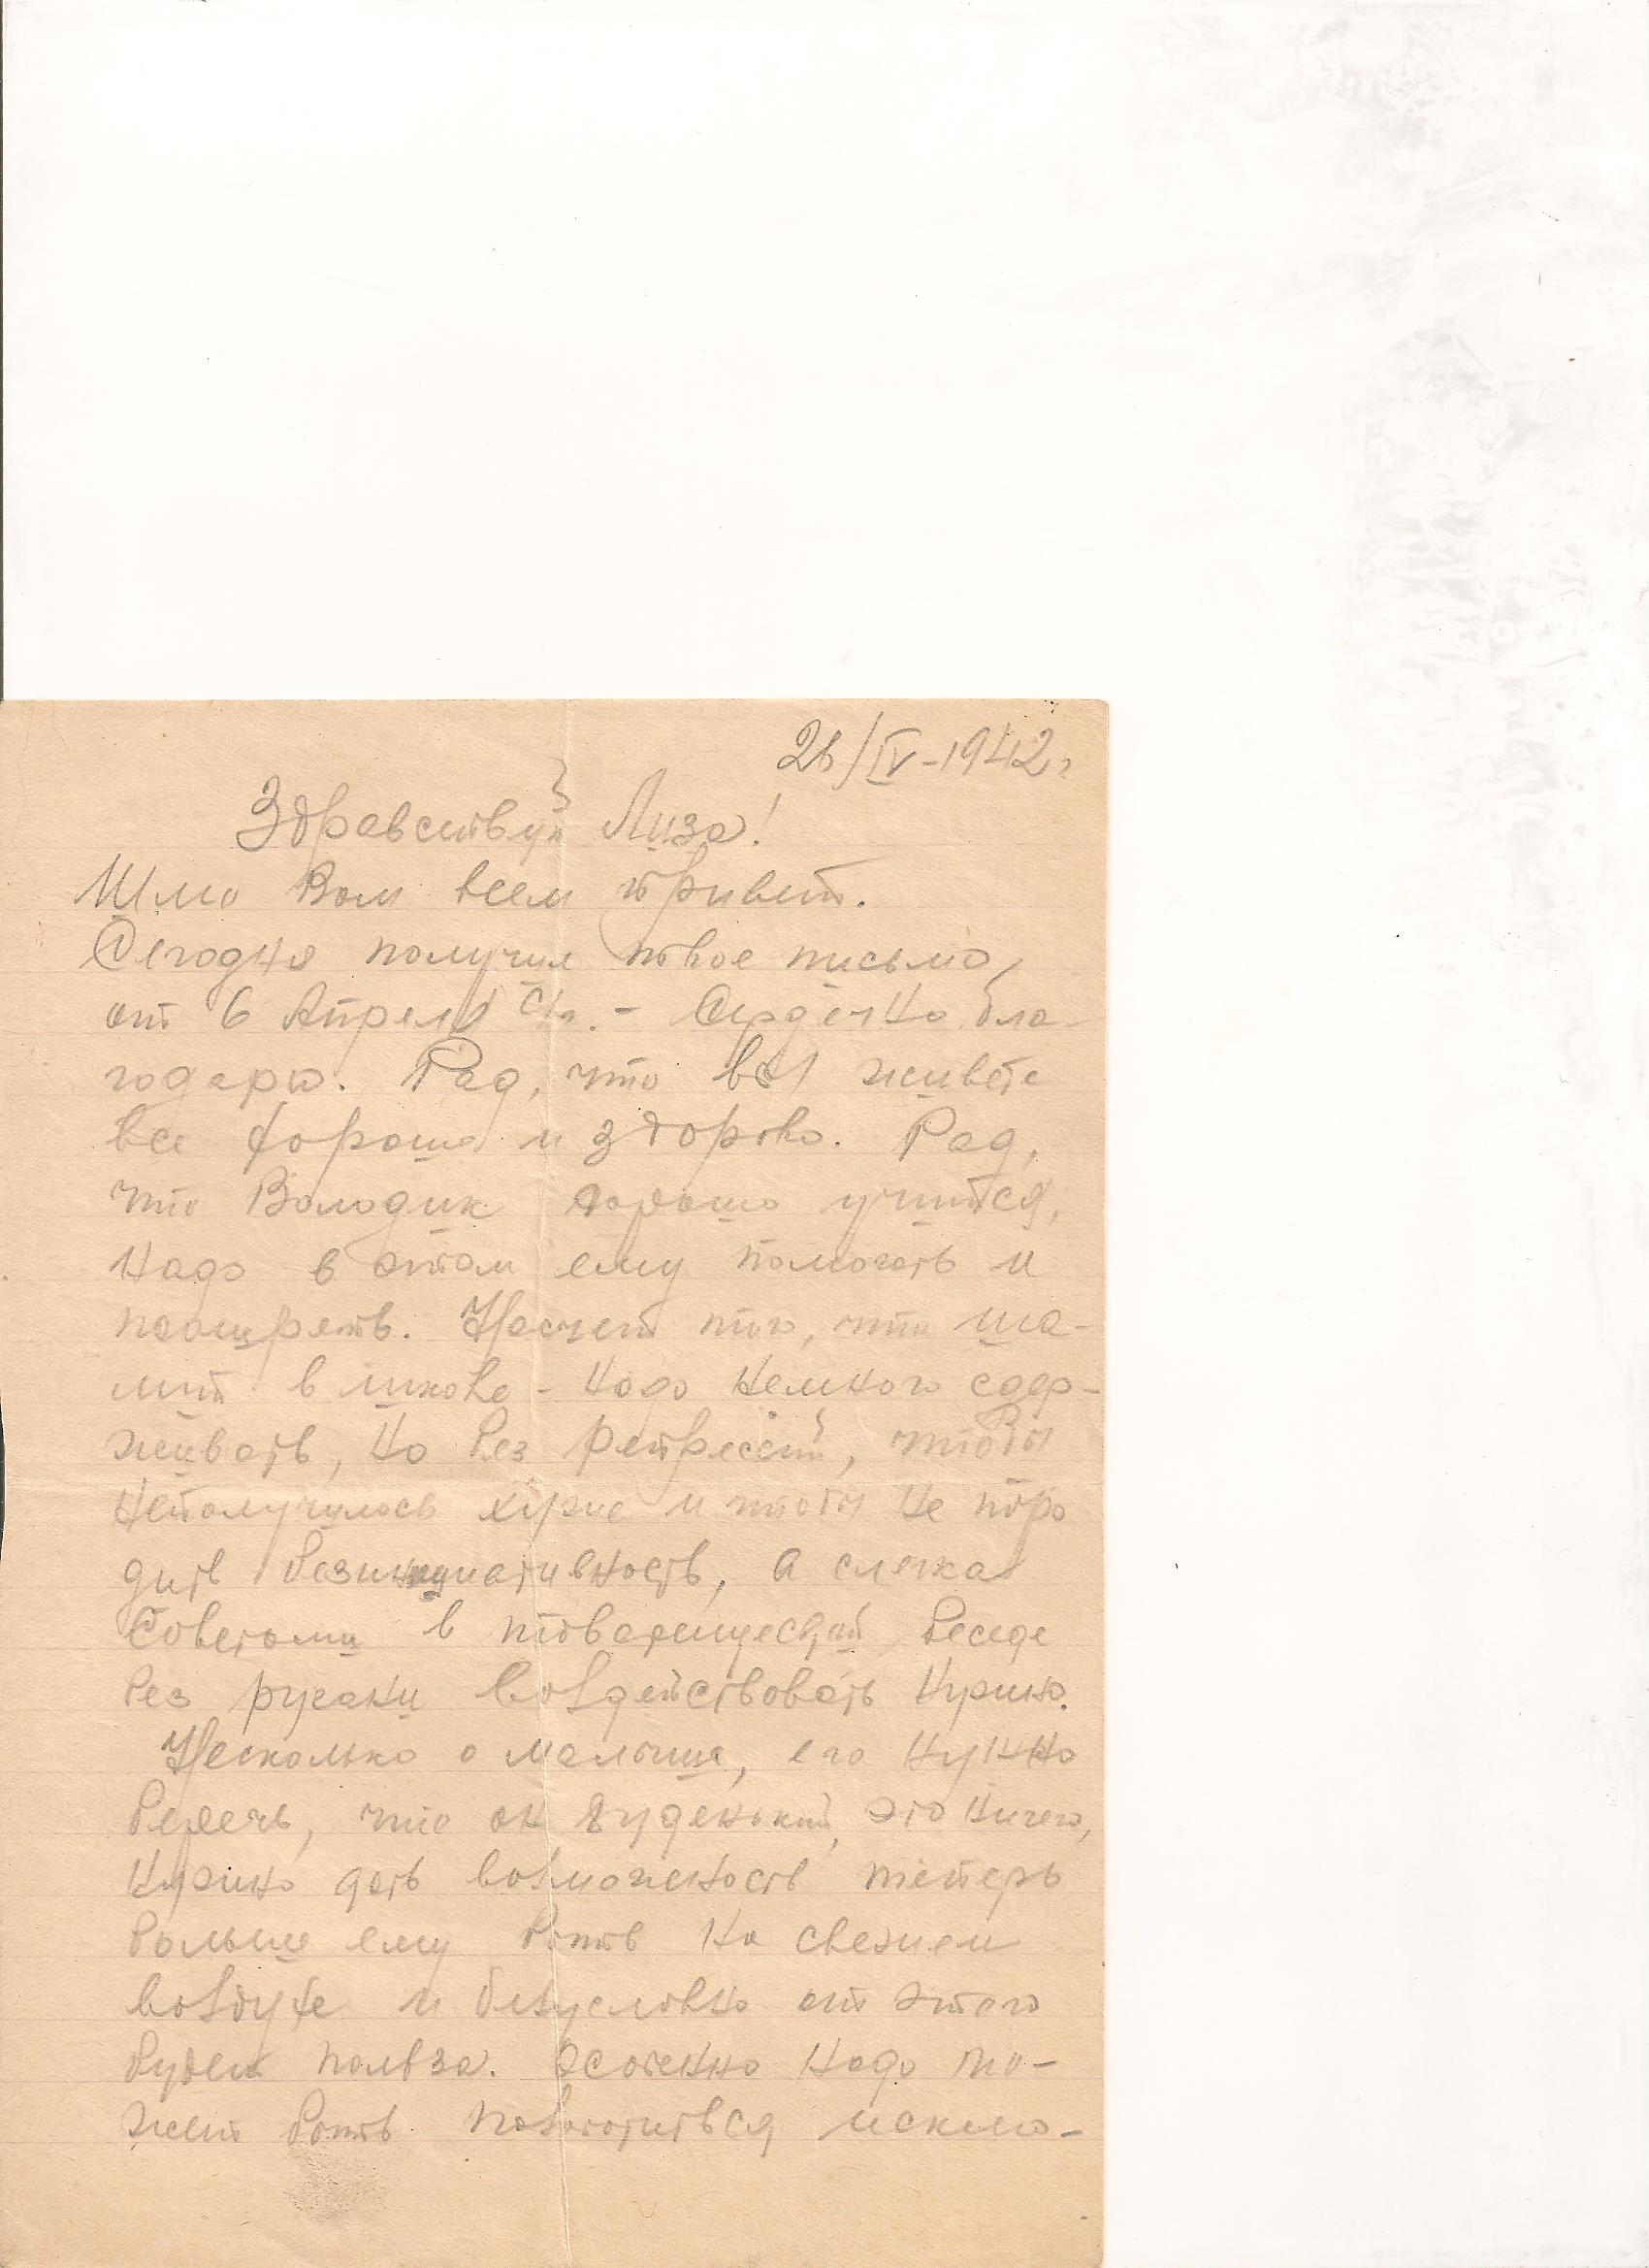 26/IV-1942 г
Здравствуй Лиза!
Шлю Вам всем привет.
Сегодня получил твое письмо,
от 6 Апреля с/г. - Сердечно бла-
годарю. Рад, что вы живете
все хорошо и здорово. Рад,
что Володик хорошо учится,
надо в этом ему помогать и
поощрять. Насчет того, что ша-
лит в школе - надо немного сдер-
живать, но без репрессий, чтобы
неполучилось хуже и чтобы не поро
дить безинициативность, а слегка
советами в товарищеской беседе
без ругани воздействовать нужно.
Несколько о малыше, его нужно
беречь, что он худенький, это ничего,
нужно дать возможность теперь
больше ему быть на свежем
воздухе и безусловно от этого
будет польза. Особенно надо мо-
жет быть позаботиться исклю-